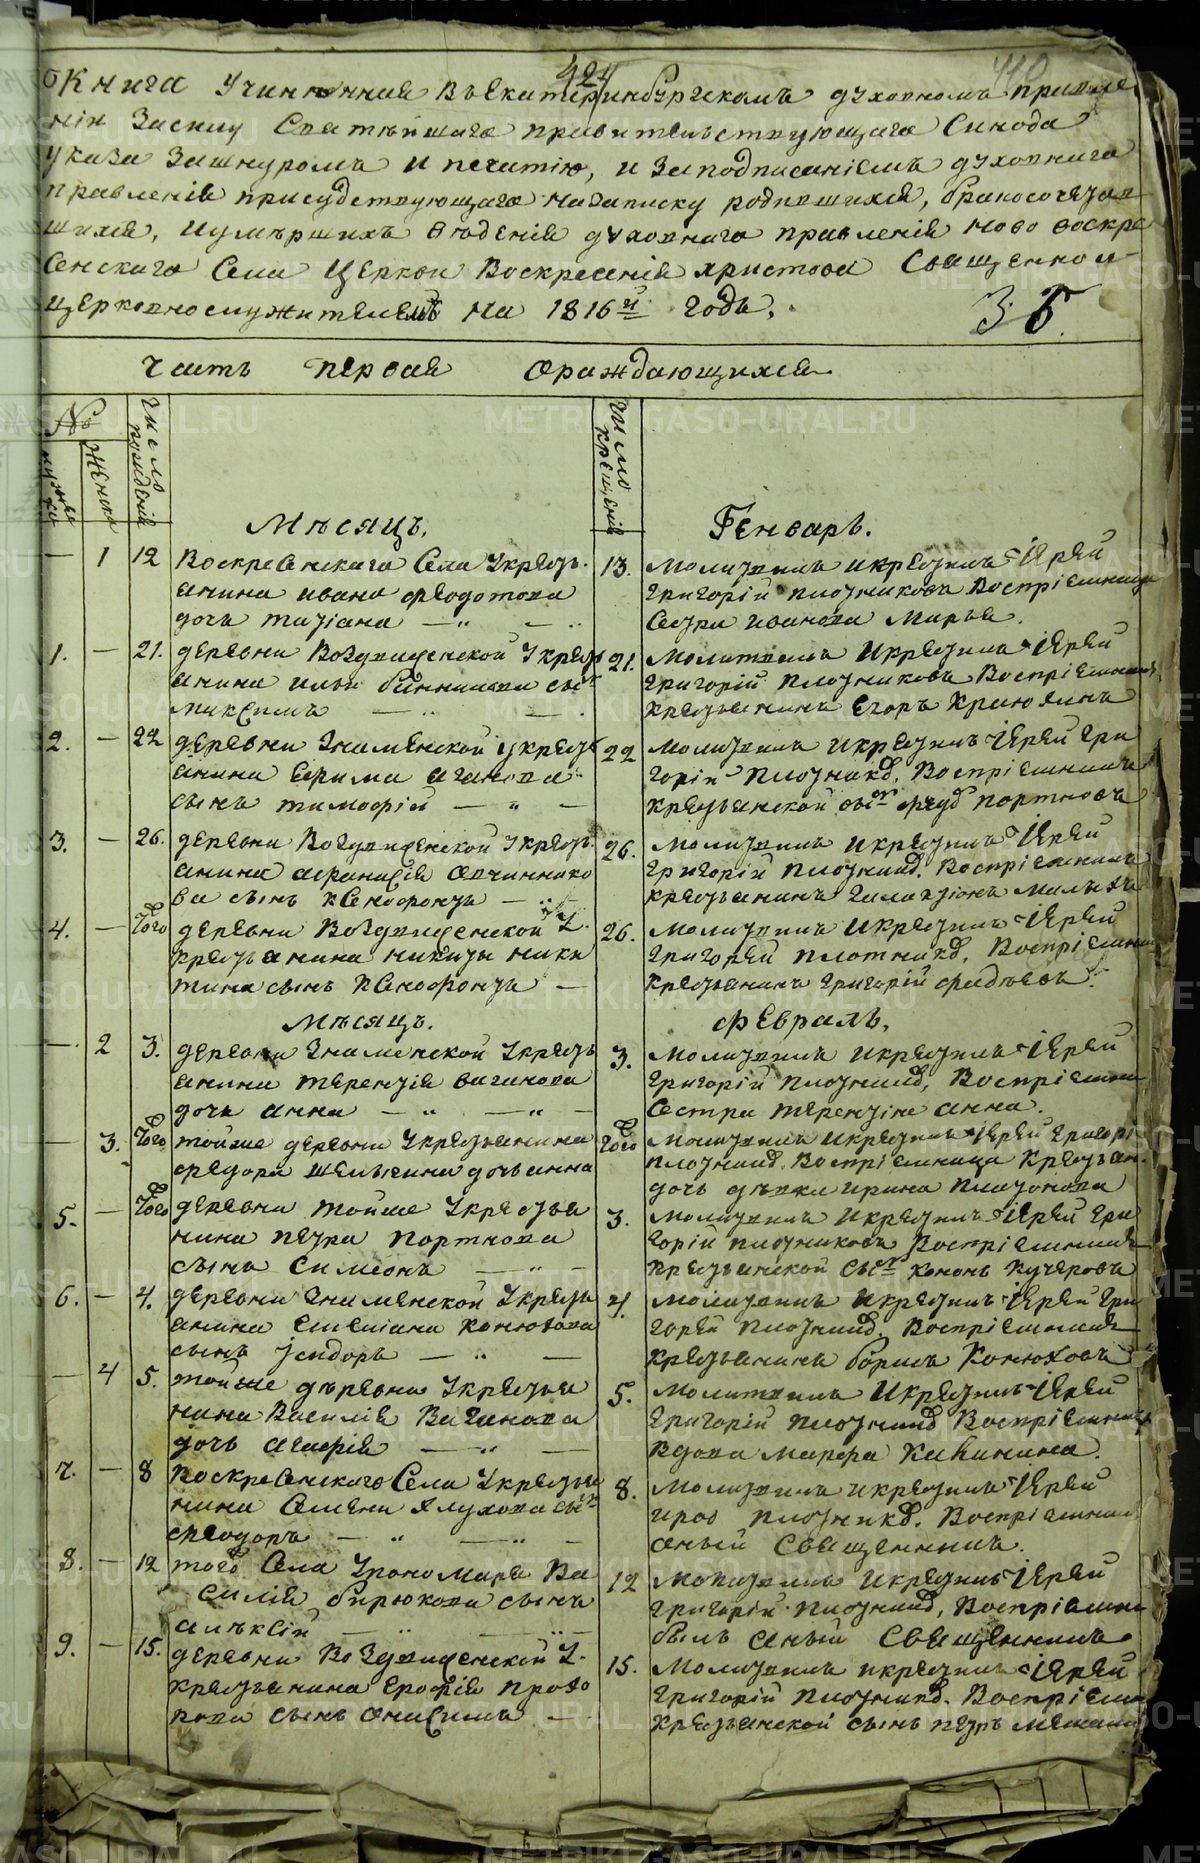 424
410
Книга Учиненная Въ Екатеринбургскомъ духовномъ правле
нии Засилу Святейшаго правительствующаго Синода
указа Зашнуромъ и печатью, и Заподписаниемъ духовнаго
правления присудствующаго назаписку родившихся, бракосочетав
шихся, иумершихъ ведения духовнаго правления ново воскре
сенскаго Села Церкви Воскресения христова Священнои
церковнослужителей На 1816й годъ.
36.
Часть первая ораждающихся
№
мужска
женска
Число рождения
Число крещения
Месяцъ.
Генварь.
— 1 12 Воскресенскаго Села Укресть
янина ивана федотова
дочь татиана — „ — „
13. Молитвилъ икрестилъ Иерей
григорий плотниковъ Восприемница
Сестра иванова Марья.
1. — 21. деревни Воздвиженской Укресть
янина ильи сынъ
максимъ — „ —
21. Молитвилъ Икрестилъ Иерей
григорий плотниковъ Восприемникъ
крестьянинъ Егоръ
2. — 22 деревни Знаменской укресть
янина Ефима ваганова
сынъ тимофий — „ —
22 молитвилъ икрестилъ Иерей гри
горий плотник. Восприемникъ
крестьянской сынъ портновъ
3. — 26. деревни Воздвиженской Укресть
янина афанасия овчиннико
ва сынъ ксенофонтъ — „
26. Молитвилъ икрестилъ Иерей
григорий плотник. Восприемникъ
крестьянинъ галактионъ малыхъ
4. — Того деревни Воздвиженской У
крестьянина никиты ники
тина сынъ ксенофонтъ —
26. Молитвилъ икрестилъ Иерей
григорей плотник. Восприемник
крестьянинъ григорий фадеевъ.
Месяцъ.
февраль.
— 2 3. деревни Знаменской Укресть
янина терентия ваганова
дочь анна — „ — „ —
3. Молитвилъ икрестилъ Иерей
григорий плотник, Восприемни
Сестра терентия анна.
— 3. Того тойже деревни Укрестьянина
федора дочь анна
Того Молитвилъ икрестилъ Иерей григори
плотник. Восприемница крестьян
дочь девка ирина платонова
5. — Того деревни тойже Укрестья
нина петра портнова
сынъ симеонъ — „ —
3. Молитвилъ икрестилъ Иерей гри
горий плотниковъ Восприемникъ
крестьянской сынъ кононъ кучеровъ
6. — 4. деревни Знаменской Укресть
янина емелиана конюхова
сынъ исидоръ — „ —
4. Молитвилъ икрестилъ Иерей гри
горей плотник. Восприемникъ
крестьянинъ борисъ Конюховъ
— 4 5. тойже деревни Укрестья
нина Василия Ваганова
дочь агафия — „ —
5. Молитвилъ Икрестилъ Иерей
григорий плотник Восприемница
вдова марфа Кабинина.
7. — 8 Воскресенскаго Села Укрестья
нина Семена Ялухова сынъ
феодоръ — „ — „ —
8. Молитвилъ икрестилъ Иерей
плотник. Восприемник
оный Священникъ.
8. — 12 того Села Упономаря Ва
силия бирюкова сынъ
алексий — „ — „ —
12 Молитвилъ Икрестилъ Иерей
григорий плотник, Восприемни
былъ оный Священникъ
9. — 15. деревни Воздвиженской У
крестьянина Ерофия прохо
рова сынъ онисимъ —
15. Молитвилъ икрестилъ Иерей
григорий плотник. Восприемн
крестьянской сынъ петръ